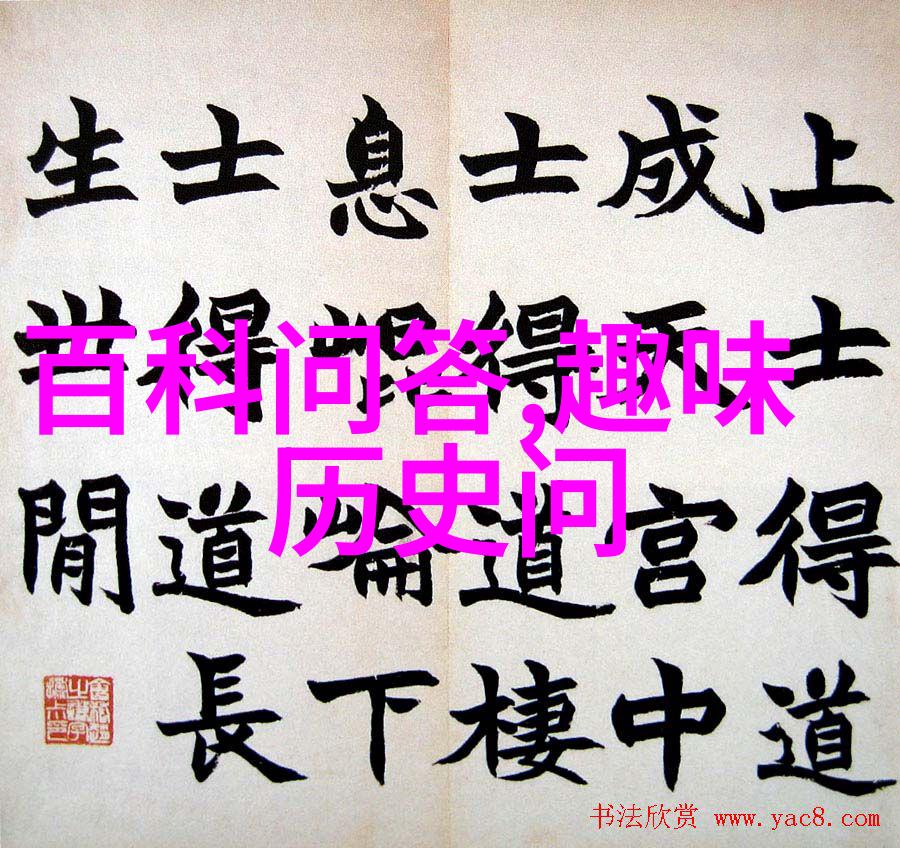 上士得道
成天宫中
士得道棲
息崐崘下
士得道長
生世閒
百科问答,趣味
历史问
书法欣赏 www.yac8.com